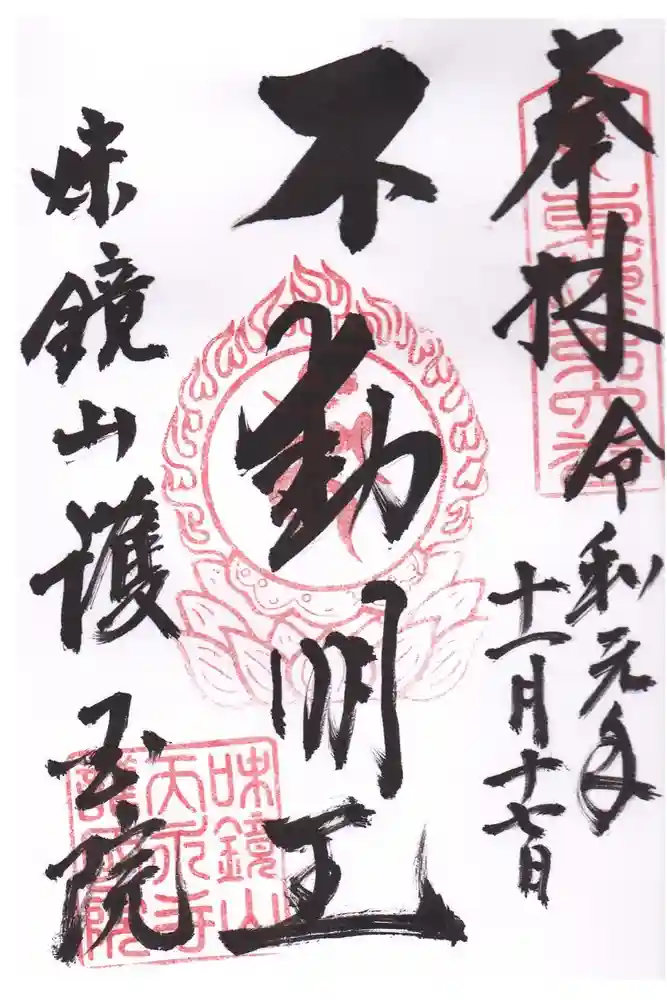 奉拝
令和元年
十一月十七日
不動明王
味鏡山護国院
味鏡山
天永寺
護國院